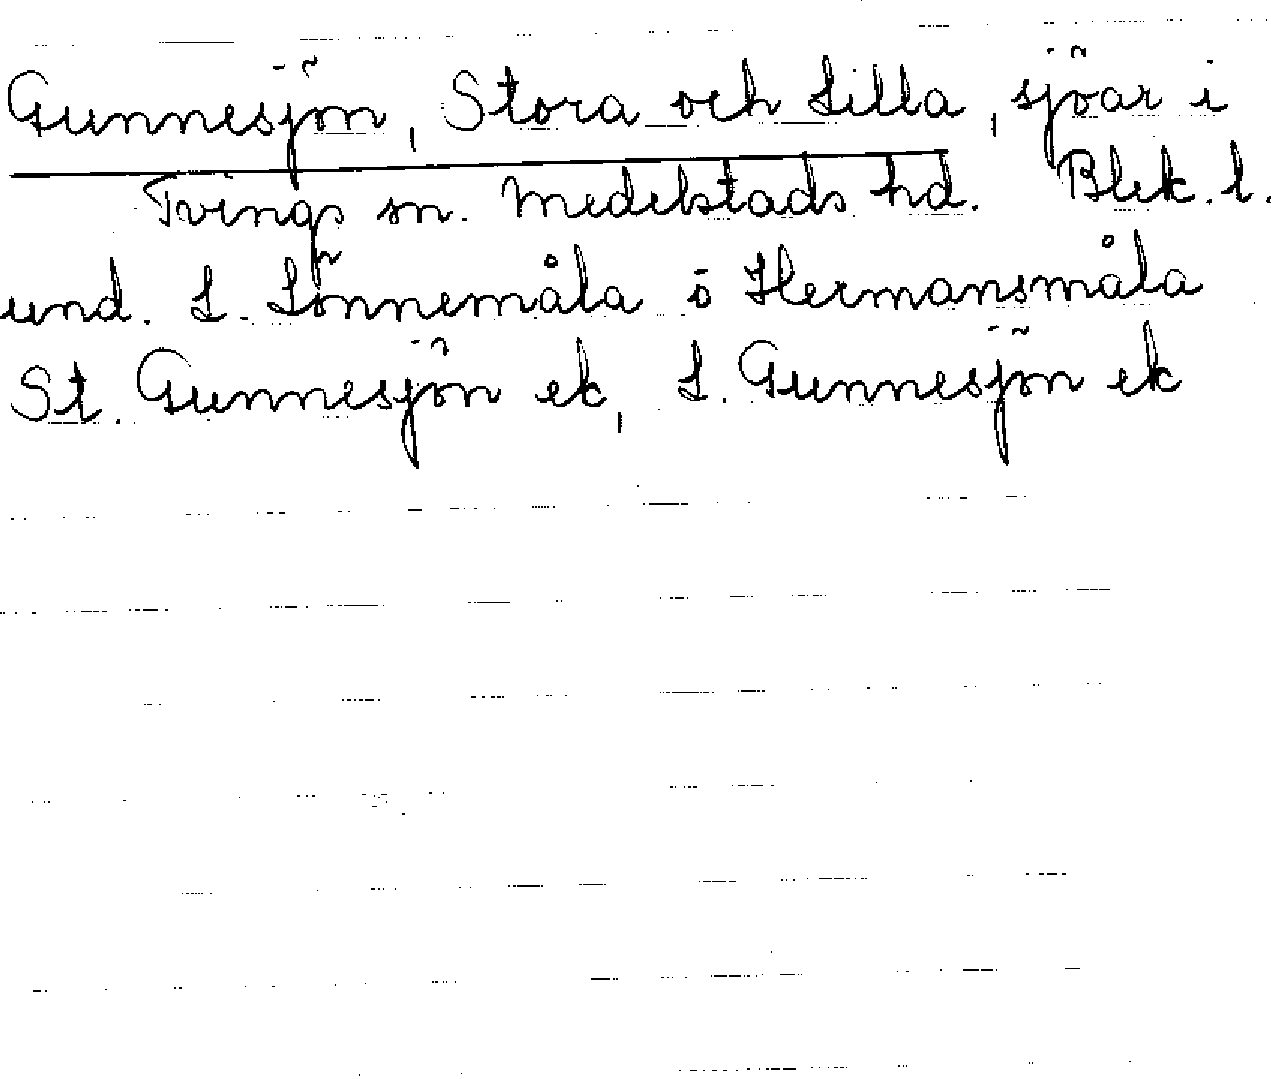 Gunnesjön, Stora och Lilla, sjöar i
Tvings sn. Medelstads hd. Blek. l.
und. L. Lönnemåla o Hermansmåla
St. Gunnesjön ek, L. Gunnesjön ek